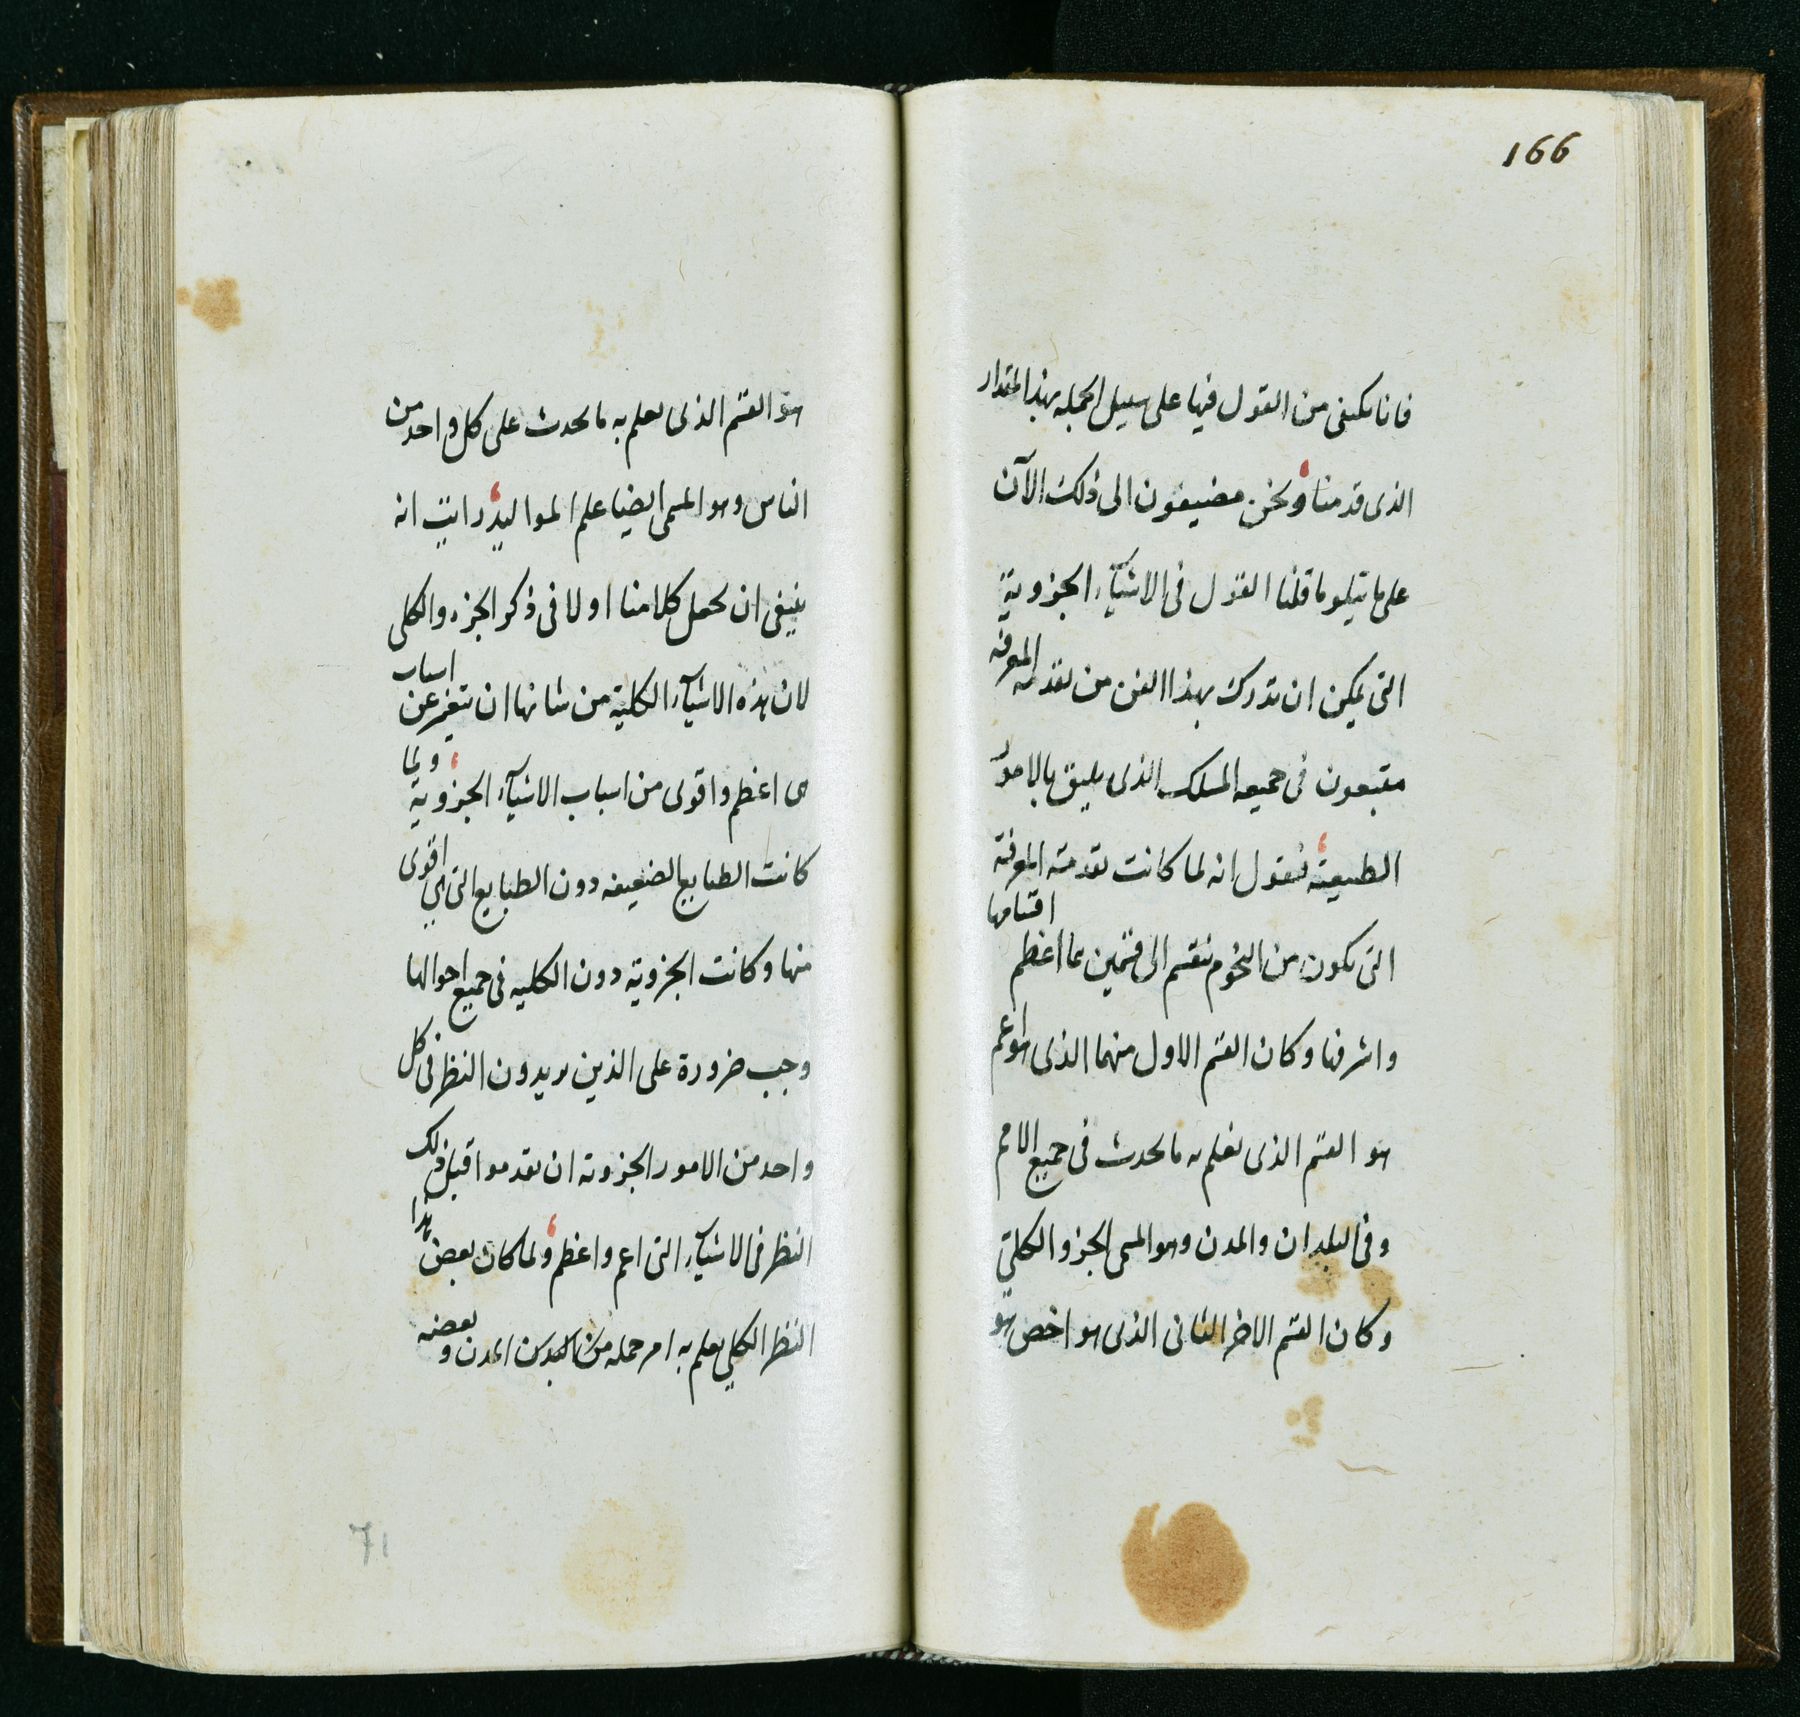 166
فانا نكتفى من القول فيها على سبيل الجمله بهذا المقدار
الذى قدمنا ونحن مضيفون الى ذلك الآن
على ما يتلو ما قلنا القول فى الاشيآء الجزوية
التى يمكن ان تدرك بهذا الفن من تقدمه المعرفه
متبعون فى جميعه المسلك الذى يليق بالامور
الطبيعية فنقول انه لما كانت تقدمة المعرفة
التى تكون من النجوم تنقسم الى قسمين هما اعظم اقسامها
واشرفها وكان القسم الاول منهما الذى هو اعم
هو القسم الذى نعلم به ما يحدث فى جميع الامم
وفى البلدان والمدن وهو المسمى الجزو الكلى
وكان القسم الاخر الثانى الذى هو اخص هو
هو القسم الذى يعلم به ما يحدث على كل واحد من
الناس وهو المسمى ايضا علم المواليد رايت انه
ينبغى ان نجعل كلامنا اولا فى ذكر الجزء والكلى
لان هذه الاشيآء الكلية من شانها ان تتغير عن اسباب
هى اعظم واقوى من اسباب الاشيآء الجزوية ولما
كانت الطبايع الضعيفه دون الطبايع التى هى اقوى
منها وكانت الجزوية دون الكليه فى جميع احوالها
وجب ضرورة على الذين يريدون النظر فى كل
واحد من الامور الجزوية ان يقدموا قبل ذلك
النظر فى الاشيآء التى اعم واعظم ولما كان بعض هذا
النظر الكلى يعلم به امر جمله من المدن وبعضه
71